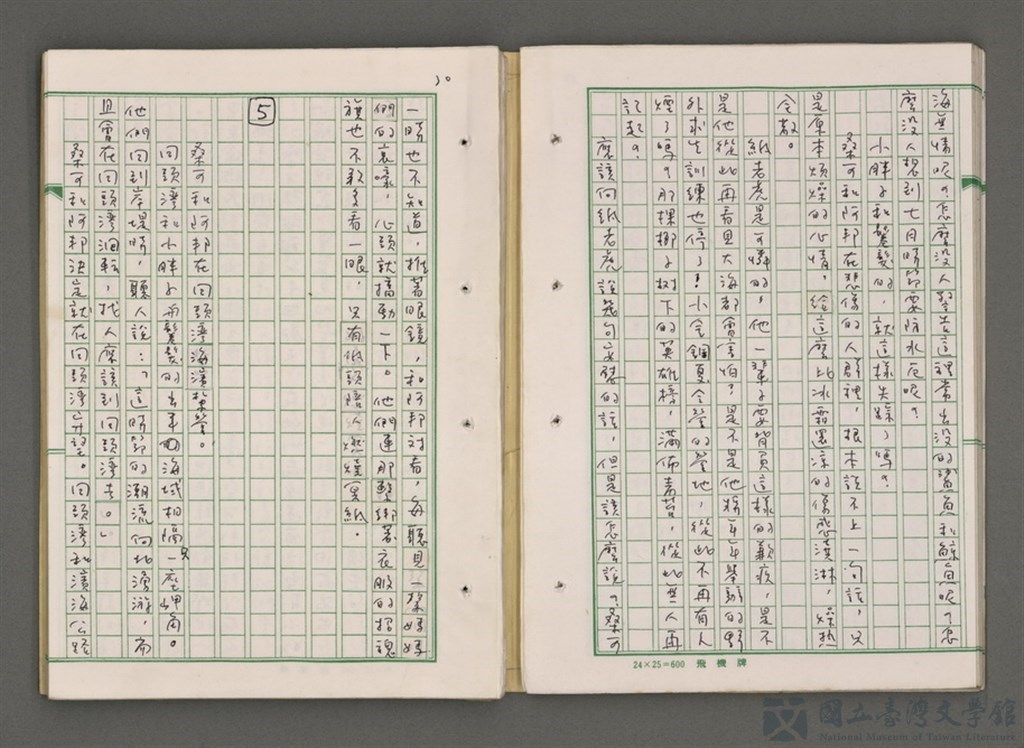 海無情呢？怎麼沒人警告這裡常出沒的鯊魚和鯨魚呢？怎
麼沒人想到七月時節要防水厄呢？
小胖子和鬈髮的，就這樣失踪了嗎？
桑可和阿邦在悲傷的人群裡，根本說不上一句話，只
是原本煩燥的心情，給這麼比冰霜還涼的傷感澆淋，燥熱
全散。
紙老虎是可憐的，他一輩子要背負這樣的歉疚，是不
是他從此再看見大海都會害怕？是不是他將年年舉辦的野
外求生訓練也停了！小金鋼夏令營的營地，從此不再有人
煙了嗎？那棵椰子樹下的英雄榜，滿佈青苔，從此無人再
記起？
應該向紙老虎說幾句安慰的話，但是該怎麼說？桑可
30
一時也不知道，推著眼鏡，和阿邦對看，每聽見一聲媽媽
們的哀嚎，心頭就搐動一下。他們連那整綁著衣服的招魂
旗也不敢多看一眼，只有低頭陪人燃燒冥紙。
5
桑可和阿邦在回頭灣海濱紮營。
回頭灣和小胖子與鬈髮的出事的海域相隔一座岬角。
他們回到岸堤時，聽人說：「這時節的潮流向北湧游，而
且會在回頭灣迴轉，找人應該到回頭灣去。」
桑可和阿邦決定就在回頭灣守望。回頭灣和濱海公路
24×25=600 飛機牌
國立臺灣文學館
National Museum of Taiwan Literature